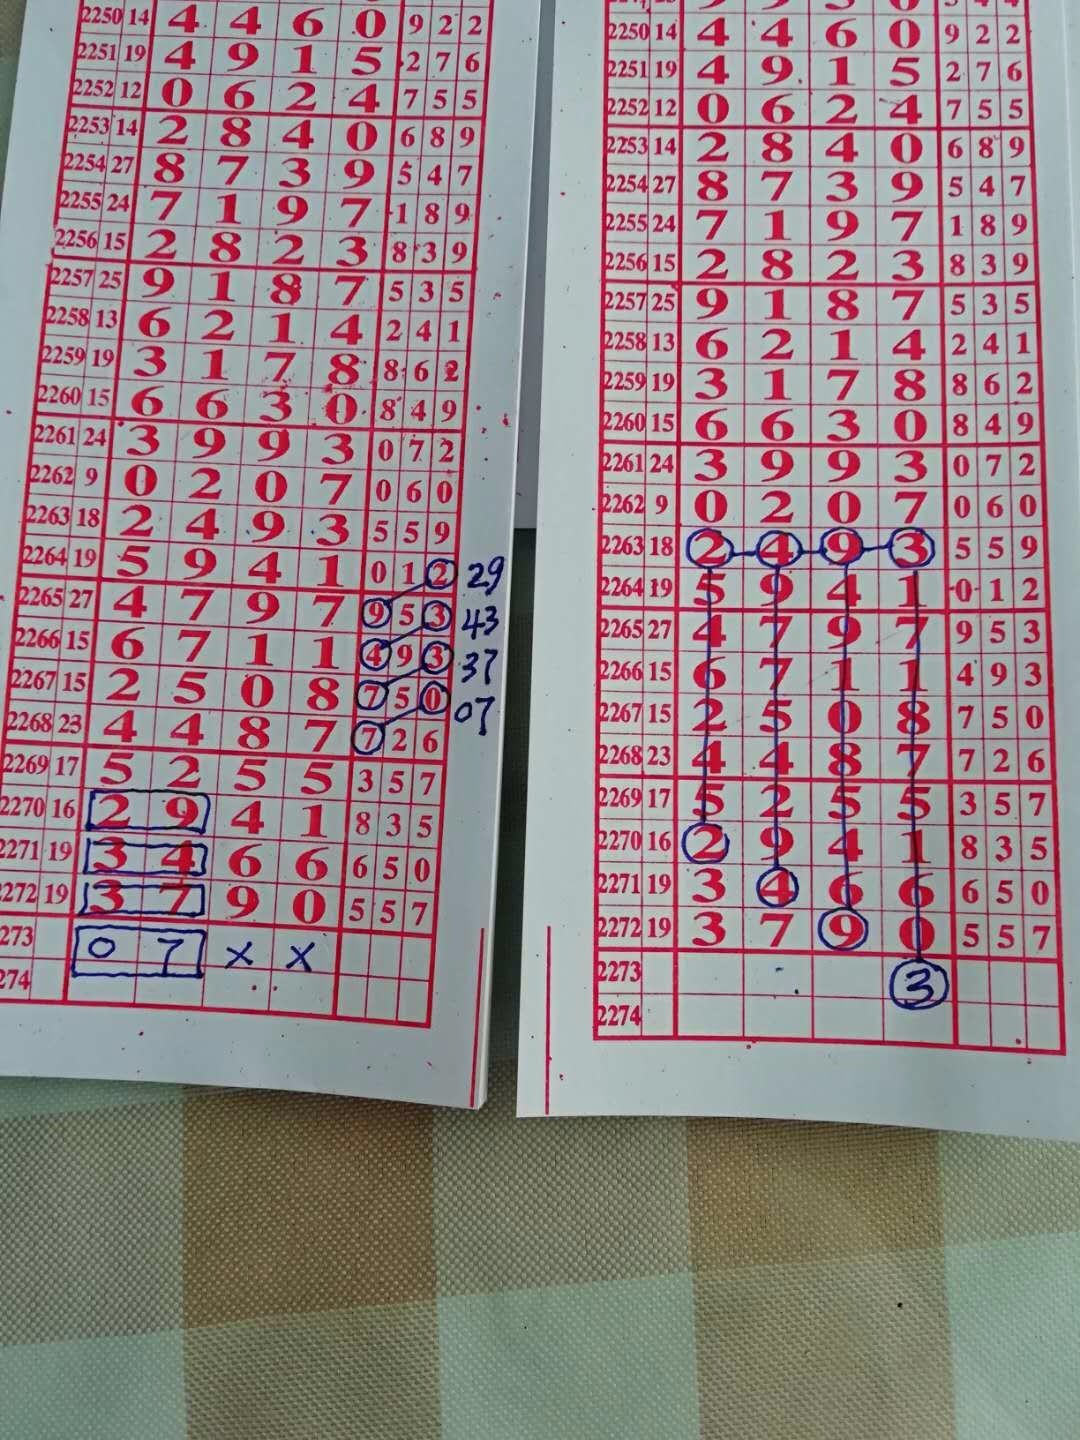 2250 14 4 4 6 0 9 2 2
2251 19 4 9 1 5 2 7 6
2252 12 0 6 2 4 7 5 5
2253 14 2 8 4 0 6 8 9
2254 27 8 7 3 9 5 4 7
2255 24 7 1 9 7 1 8 9
2256 15 2 8 2 3 8 3 9
2257 25 9 1 8 7 5 3 5
2258 13 6 2 1 4 2 4 1
2259 19 3 1 7 8 8 6 2
2260 15 6 6 3 0 8 4 9
2261 24 3 9 9 3 0 7 2
2262 9 0 2 0 7 0 6 0
2263 18 2 4 9 3 5 5 9
2264 19 5 9 4 1 0 1 2 29
2265 27 4 7 9 7 9 5 3 43
2266 15 6 7 1 1 4 9 3 37
2267 15 2 5 0 8 7 5 0 07
2268 23 4 4 8 7 7 2 6
2269 17 5 2 5 5 3 5 7
2270 16 2 9 4 1 8 3 5
2271 19 3 4 6 6 6 5 0
2272 19 3 7 9 0 5 5 7
273 0 7 × ×
274
2250 14 4 4 6 0 9 2 2
2251 19 4 9 1 5 2 7 6
2252 12 0 6 2 4 7 5 5
2253 14 2 8 4 0 6 8 9
2254 27 8 7 3 9 5 4 7
2255 24 7 1 9 7 1 8 9
2256 15 2 8 2 3 8 3 9
2257 25 9 1 8 7 5 3 5
2258 13 6 2 1 4 2 4 1
2259 19 3 1 7 8 8 6 2
2260 15 6 6 3 0 8 4 9
2261 24 3 9 9 3 0 7 2
2262 9 0 2 0 7 0 6 0
2263 18 2 4 9 3 5 5 9
2264 19 5 9 4 1 0 1 2
2265 27 4 7 9 7 9 5 3
2266 15 6 7 1 1 4 9 3
2267 15 2 5 0 8 7 5 0
2268 23 4 4 8 7 7 2 6
2269 17 5 2 5 5 3 5 7
2270 16 2 9 4 1 8 3 5
2271 19 3 4 6 6 6 5 0
2272 19 3 7 9 0 5 5 7
2273 3
2274